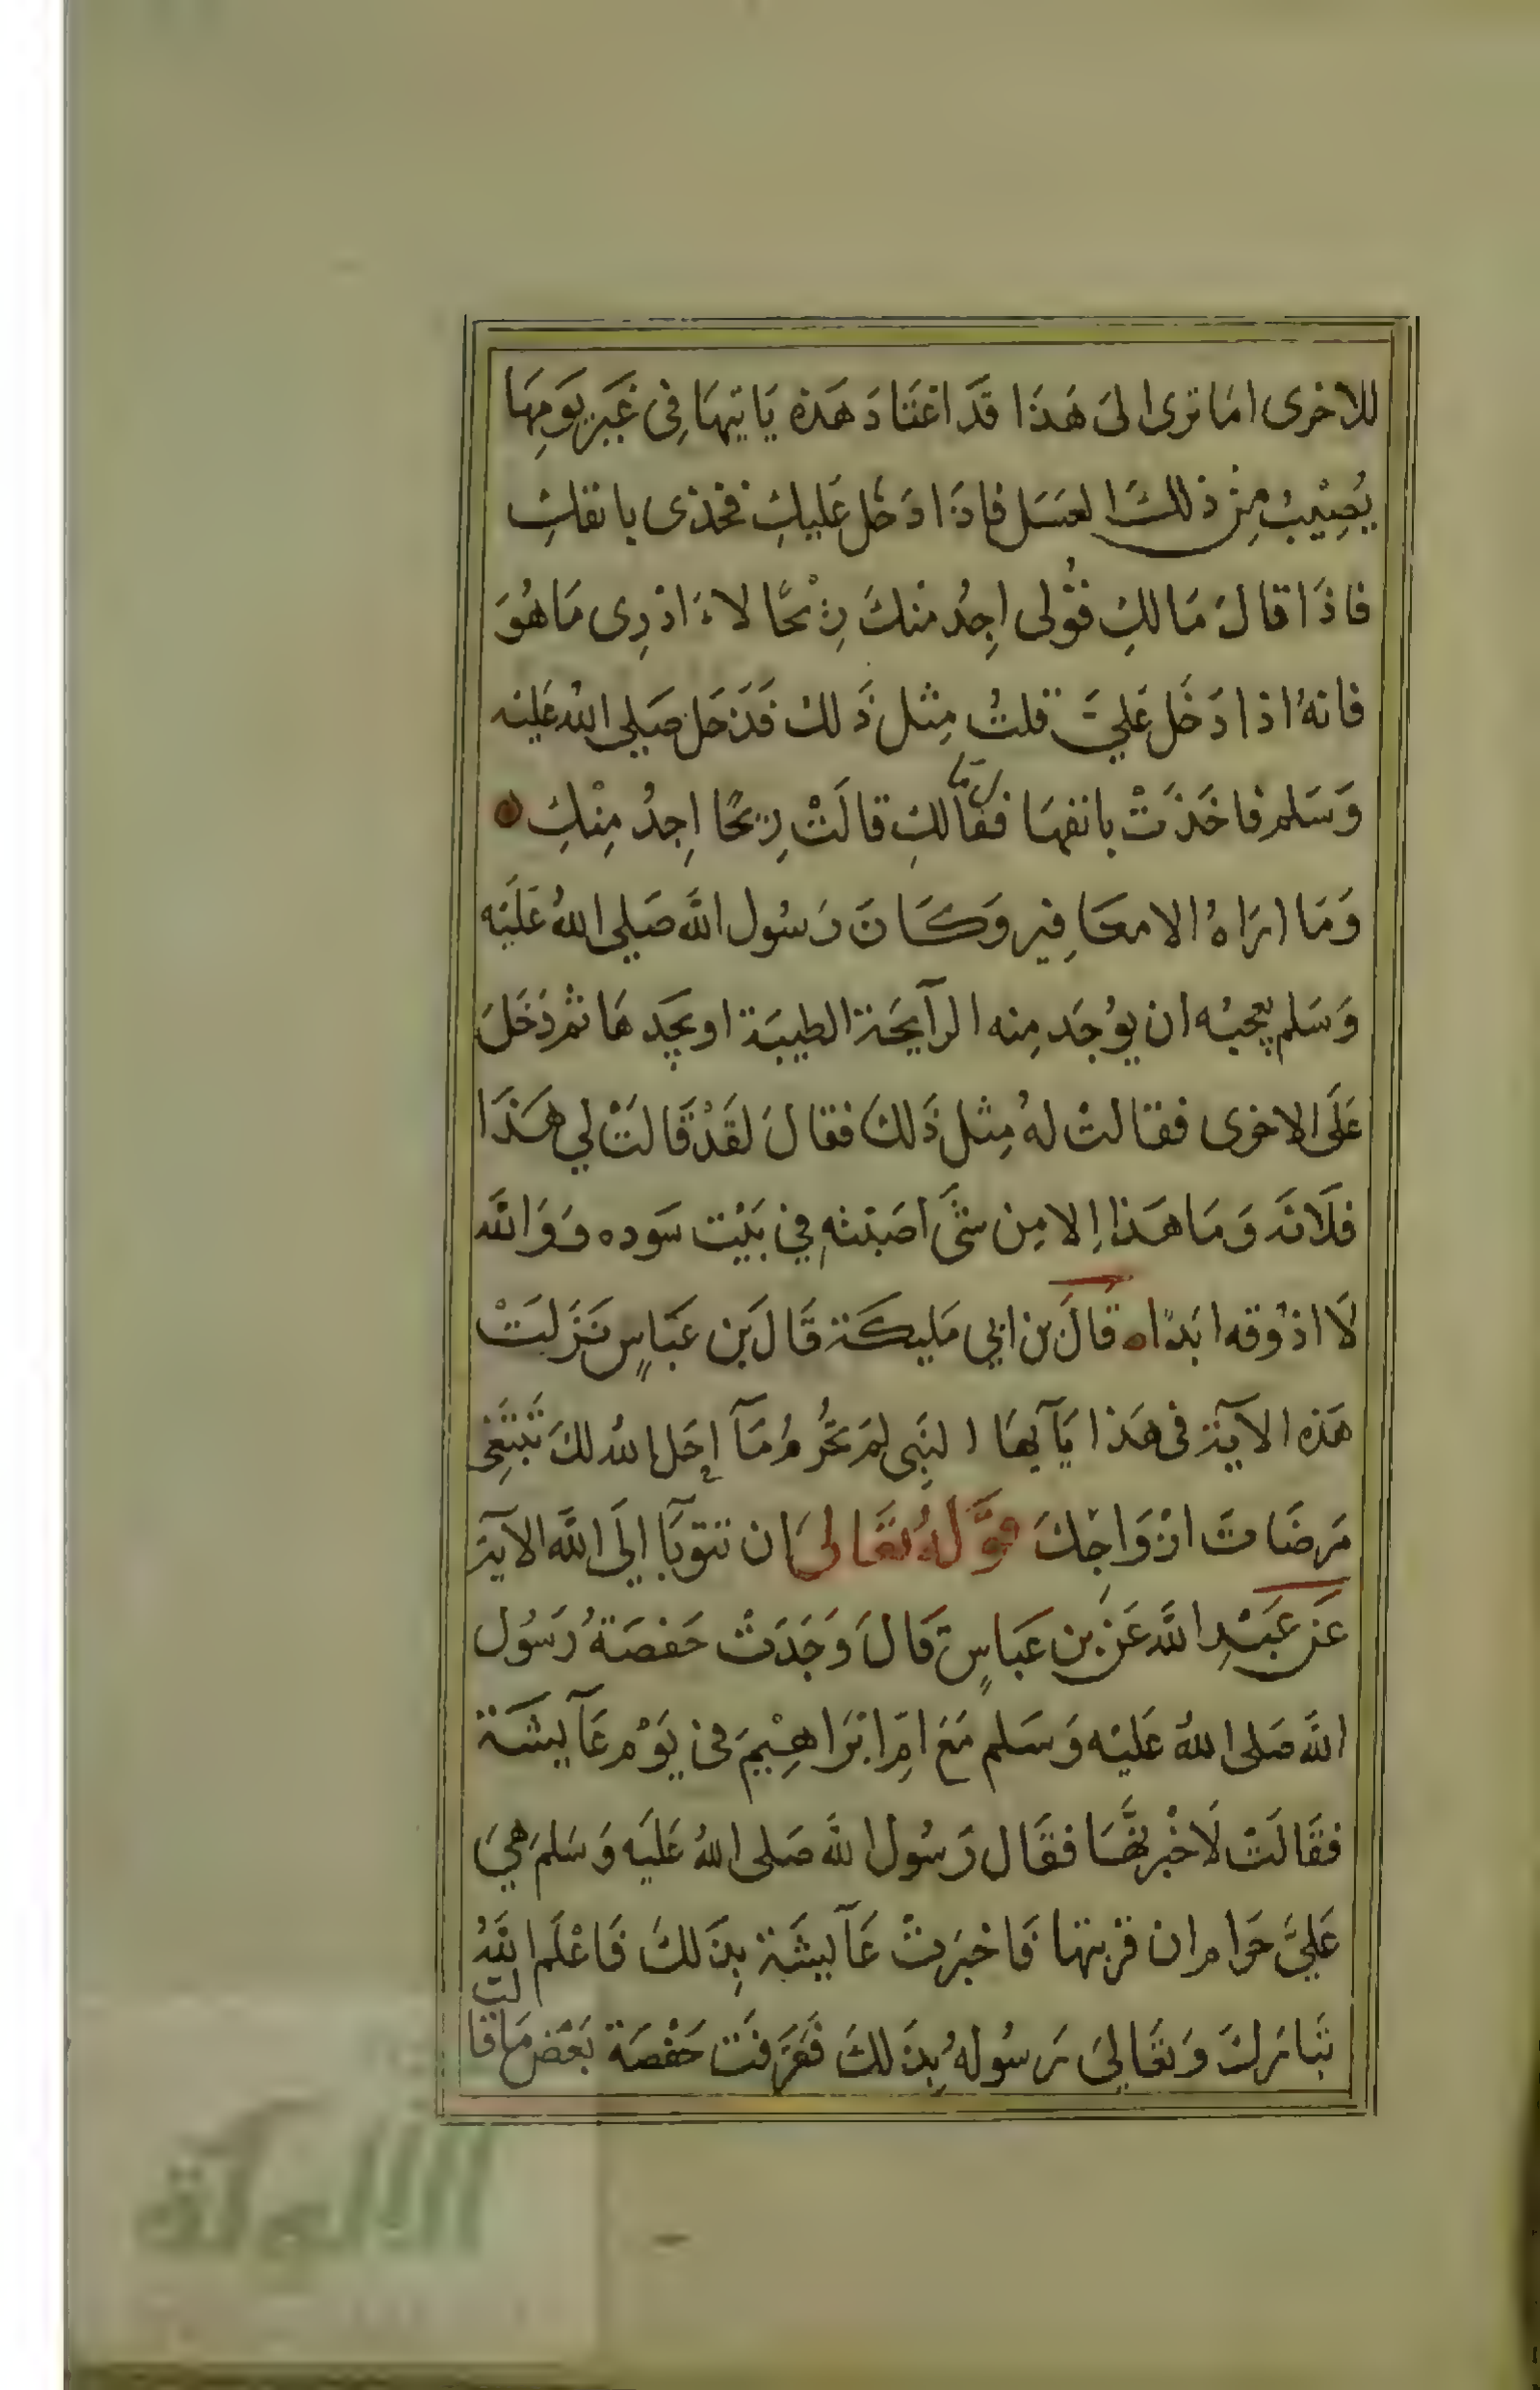 للاخرى اما ترى الى هَذَا قَد اعْتَادَ هَذه يَاتيهَا فِى غَيْر يَومِهَا
يُصِيْبُ مِنْ ذلكَ العسَل فاذَا دَخَل عَليكِ فخذى بانفكِ
فاذَا قالَ مَالكِ فقُولى اجِدُ منْكَ رِيْحًا لاءَ ادْرِى مَا هُوَ
فانهُ اذا دَخَل عَليَّ قلتُ مِثل ذَلك فَدَخل صَلى اللهُ عَليْه
وَسَلم فاخَذَتْ بانفهَا فقال مَا لكِ قالَتْ رِيحًا اجِدُ مِنْكِ
وَمَا ارَاهُ الا معَافِير وَكَانَ رَسُول اللَّه صَلى اللهُ عَليَه
وَسَلم يعجبُه ان يوُجَد مِنه الرآيحَة الطيبَة او يجِدهَا ثم دَخَلَ
عَلَى الاخرى فقالتْ لهُ مِثل ذَلكَ فقالَ لقَدْ قَالَتْ لي هَذَا
فلَانَه وَمَا هَذا إلا مِن شىَّ اصَبته في بَيْت سَوده وَوَاللَّه
لَا اذُوقه ابَدًا ه قَالَ بن ابي مَليكَة قَالَ بن عَبَاسٍ نَزَلَتْ
هَذه الآيَة فى هَذا يَآ يهَا النَبِى لِمَ تحُرمُ مَآ احَل اللهُ لكَ تَبْتَغِى
مَرضَاتَ ازْوَاجكَ قوَّلهُ تعَالىَ ان تتوبَآ إلَى اللَّه الآيَة
عَن عَبْدِ اللَّه عَن بن عَبَاسٍ قَالَ وَجَدَتْ حَفصَةُ رَسُول
اللَّه صَلى اللهُ عَليْه وَسَلم مَعَ امِّ ابْرَاهِيْمَ فى يَوْم عَآيشَة
فقَالَتْ لَاخْبرنَّهَا فقَال رَسُول اللَّه صَلى اللهُ عَليَه وَسَلمَ هيَ
عَليَّ حَرَام ان قربتها فَاخبَرتْ عَآيشَة بِذَلكَ فَاعْلَم اللَّهُ
تَبارَكَ وَتعَالىَ رَسُولهُ بِذَلكَ فَعَرَفَت حَفْصَة بَعْض مَا قالت
الألوكة